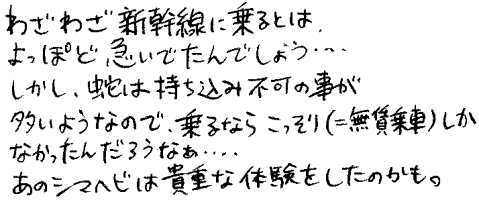 わざわざ新幹線に乗るとは、
よっぽど急いでたんでしょう…
しかし、蛇は持ち込み不可の事が
多いようなので、乗るなら こっそり(=無賃乗車)しか
なかったんだろうなぁ‥‥
あのシマヘビは貴重な体験をしたのかも。